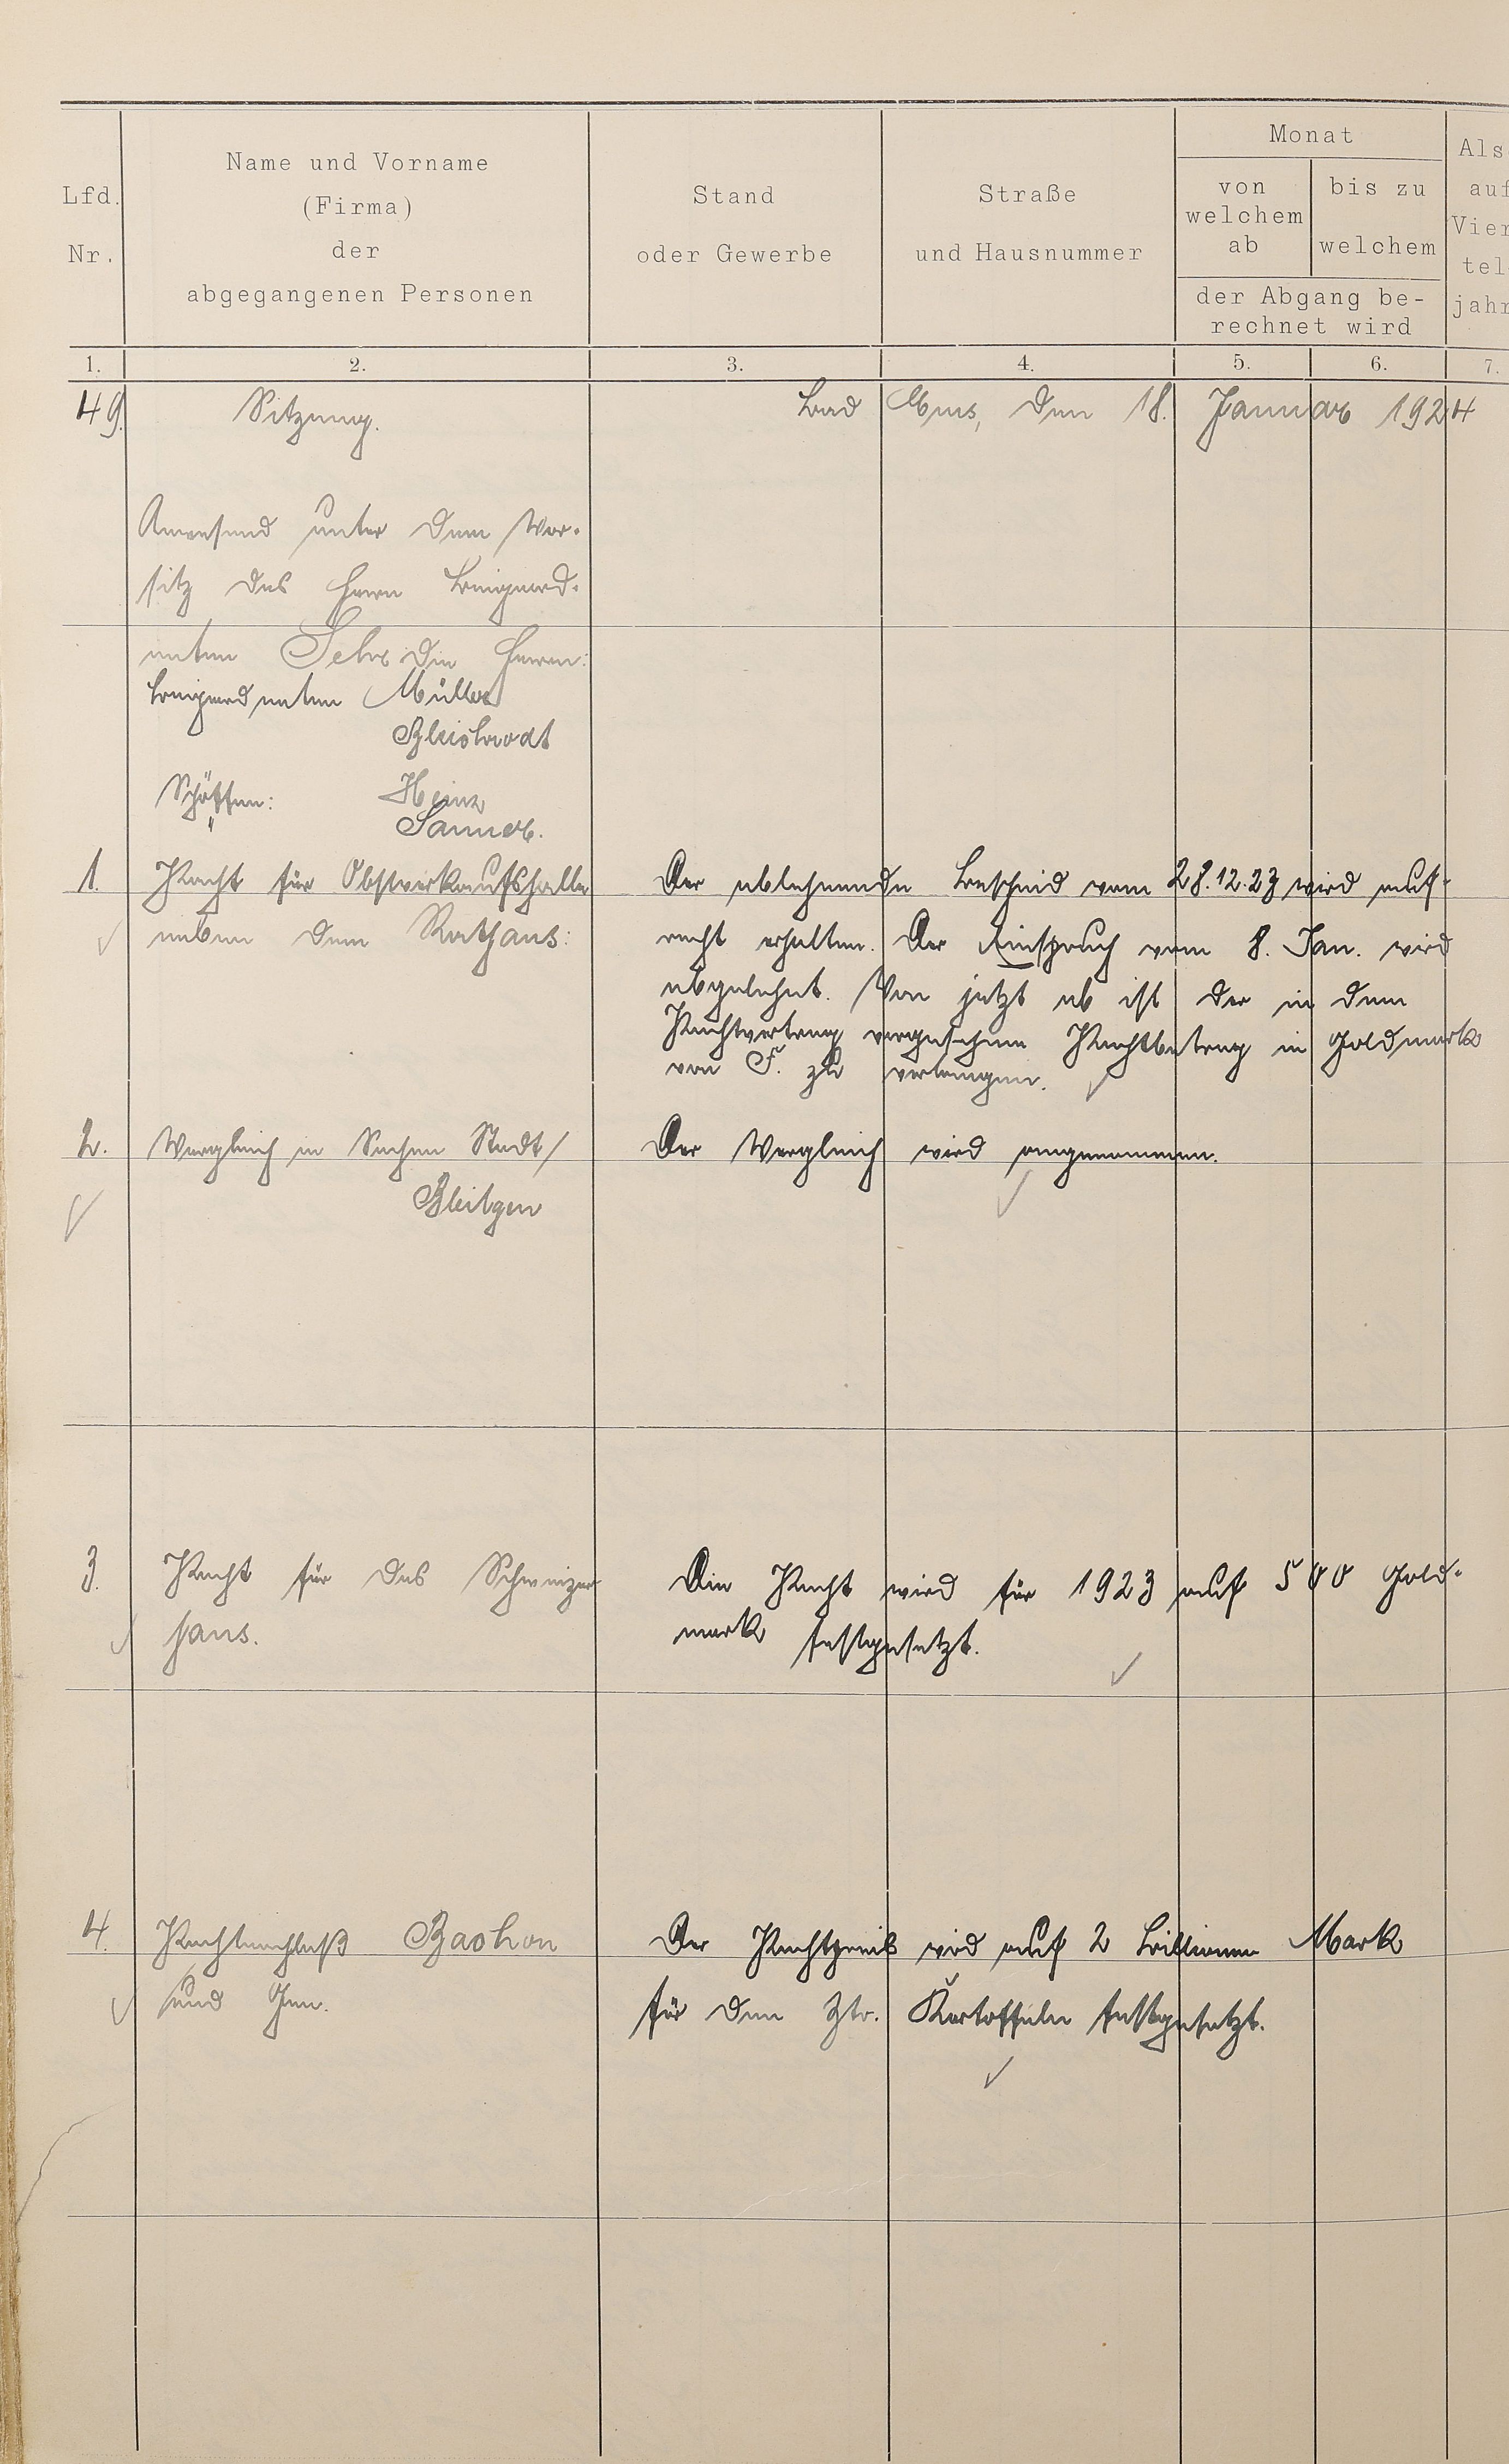 Monat
Name und Vorname
Als
Lfd.
(Firma)
Stand
Straße
von
bis zu
auf
welchem
Vier
Nr.
der
oder Gewerbe
und Hausnummer
ab
welchem
tel
abgegangenen Personen
der Abgang be-
jahr
rechnet wird
1.
2.
3.
4.
5.
6.
7.
49.
Sitzung.
Bad Ems, den 18. Januar 1924
Anwesend unter dem Vor-
sitz des Herrn Beigeord-
neten Gehr die Herren:
Beigeordneten Müller
Bleichrodt
Schöffen: Heinz
" Sanner.
1. Pacht für Obstverkaufshalle
neben dem Rathaus:
Der ablehnende Bescheid vom 28.12.23 wird auf-
recht erhalten. Der Einspruch vom 8. Jan. wird
abgelehnt. Von jetzt ab ist der in dem
Pachtvertrag vorgesehene Pachtbetrag in Goldmark
von F. zu verlangen.
2. Vergleich in Sachen Stadt/
Bleitgen
Der Vergleich wird angenommen.
3. Pacht für das Schweizer
haus.
Die Pacht wird für 1923 auf 500 Gold-
mark festgesetzt.
4. Pachtnachlaß Bachon
und Gen.
Der Pachtpreis wird auf 2 Billionen Mark
für den Ztr. Kartoffeln festgesetzt.